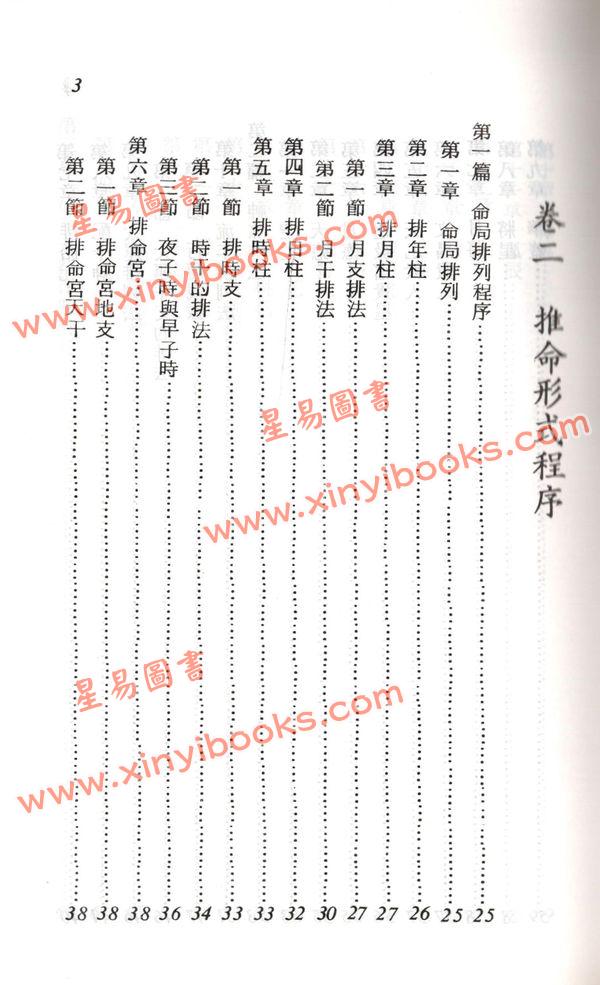 卷二 推命形式程序
第一篇 命局排列程序 25
第一章 命局排列 25
第二章 排年柱 26
第三章 排月柱 27
第一節 月支排法 27
第二節 月干排法 30
第四章 排日柱 32
第五章 排時柱 33
第一節 排時支 33
第二節 時干的排法 34
第三節 夜子時與早子時 36
第六章 排命宮 38
第一節 排命宮地支 38
第二節 排命宮天干 38
3
星易圖書
www.xinyibooks.com
星易圖書
www.xinyibooks.com
星易圖書
www.xinyibooks.com